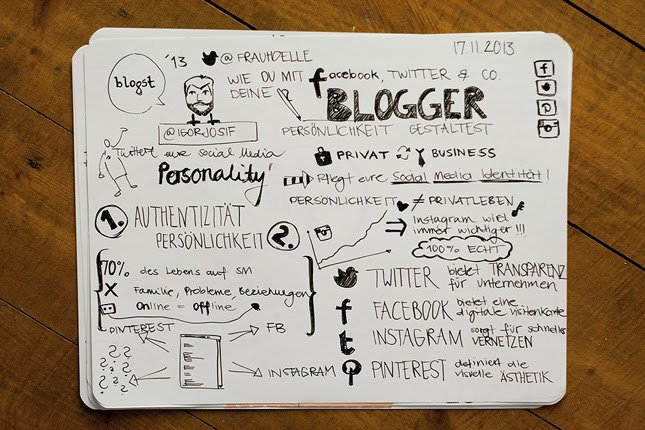 blogst
'13
@FRAUHOELLE
17.11.2013
WIE DU MIT facebook, TWITTER & CO.
DEINE BLOGGER
PERSÖNLICHKEIT GESTALTEST
@IGORJOSIF
PRIVAT BUSINESS
Twittert eure Social Media
Personality
Pflegt eure Social Media Identität!
PERSÖNLICHKEIT ≠ PRIVATLEBEN
1. AUTHENTIZITÄT
PERSÖNLICHKEIT 2.
Instagram wird
immer wichtiger!!!
100% ECHT
70% des Lebens auf SM
X Familie, Probleme, Beziehungen
Online = Offline
TWITTER bietet TRANSPARENZ
für Unternehmen
FACEBOOK bietet eine
digitale Visitenkarte
INSTAGRAM sorgt für schnelles
VERNETZEN
PINTEREST definiert die
visuelle ÄSTHETIK
PINTEREST
FB
? ? ? ? ? ?
INSTAGRAM